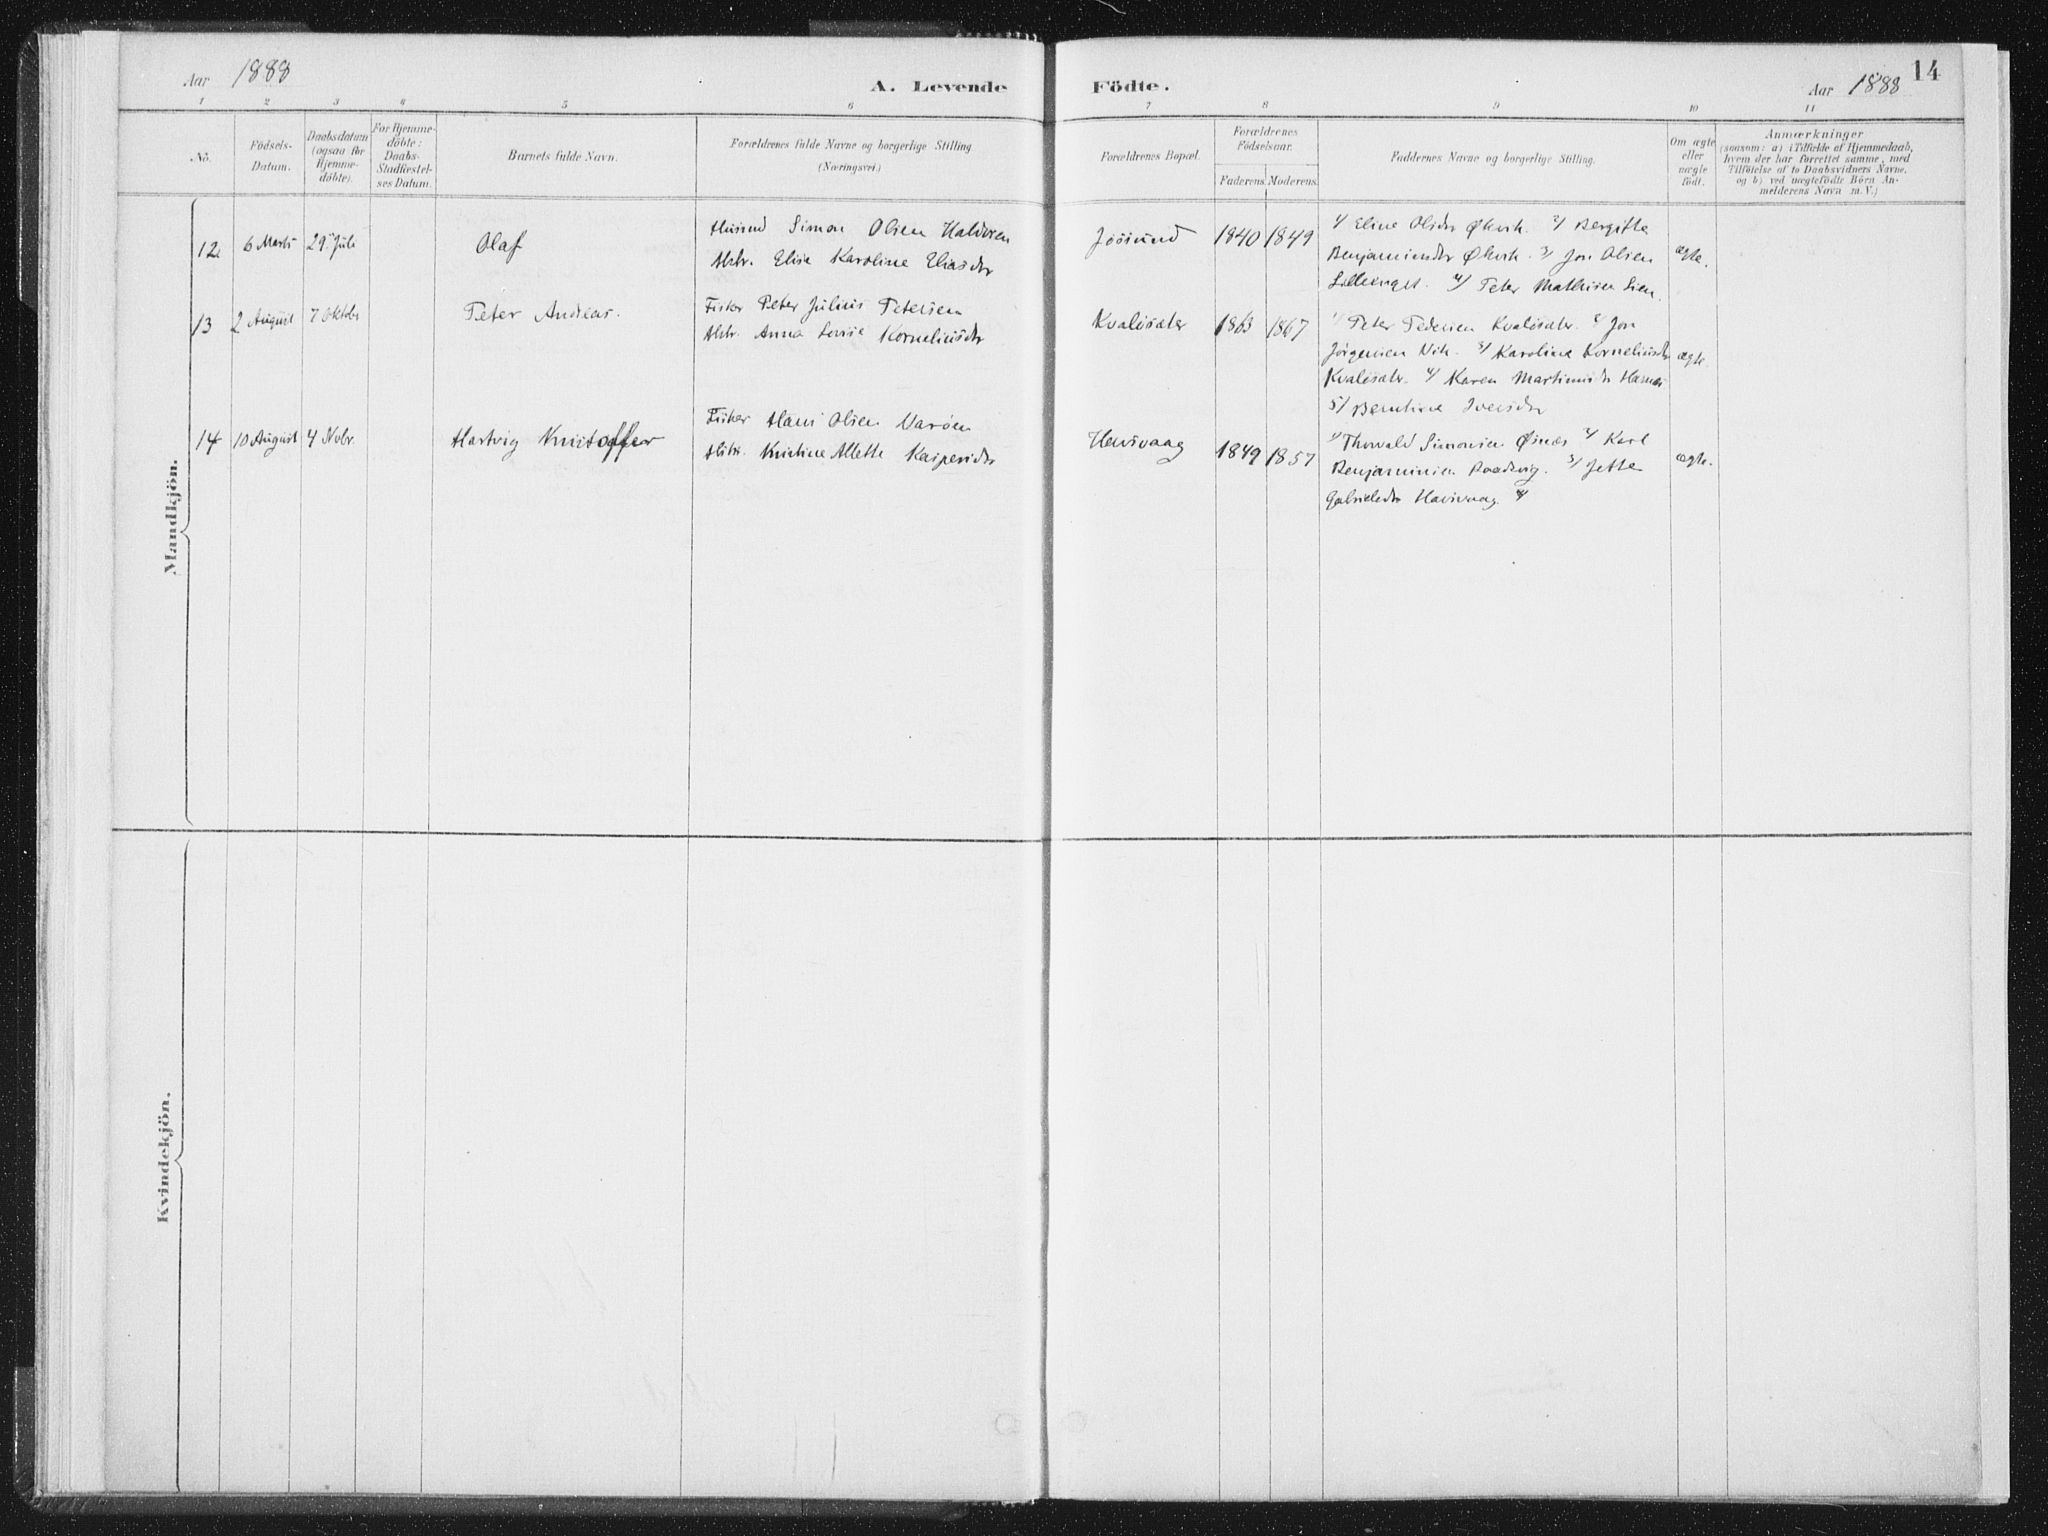 Aar 1888
A. Levende Födte.
Aar 1888
14
1 2 3 4 5 6 7 8 9 10 11
No.
Födsels-
Datum.
Daabsdatum
(ogsaa for
Hjemme-
döbte).
For Hjemme-
döbte:
Daabs-
Stadfæstel-
ses Datum.
Barnets fulde Navn.
Forældrenes fulde Navne og borgerlige Stilling
(Næringsvei.)
Forældrenes Bopæl.
Forældrenes
Födselsaar.
Faderens. Moderens.
Faddernes Navne og borgerlige Stilling.
Om ægte
eller
uægte
födt.
Anmærkninger
(saasom: a) i Tilfælde af Hjemmedaab,
hvem der har forrettet samme, med
Tilföielse af to Daabsvidners Navne,
og b) ved uægtefödte Börn An-
melderens Navn m. V.)
Mandkjön.
12 6 Marts 29 Juli Olaf
Husmd Simon Olsen Haldoren
Hstr. Elise Karoline Eliasdr
Jössund 1840 1849
1/ Eline Olsdr Økvik. 2/ Bergitte
Benjaminsdr Økvik. 3/ Jon Olsen
Lilleenget. 4/ Peter Mathisen Lien.
ægte.
13 2 August 7 Oktobr Peter Andreas.
Fisker Peter Julius Petersen
Hstr. Anna Lovise Korneliusdr
Kvalösæter 1863 1867
1/ Peter Pedersen Kvalösætr. 2/ Jon
Jörgensen Vik. 3/ Karoline Korneliusdr
Kvalösætr. 4/ Karen Martinusdr
5/ Berntine Iversdr
ægte.
14 10 August 4 Novbr. Hartvig Kristoffer
Fisker Hans Olsen Varöen
Hstr. Kristine Alette Kaspersdr
Hasvaag 1849 1857
1/ Thorvald Simonsen Øinæs 2/ Karl
Benjaminsen Raadvig. 3/ Jette
Gabrielsdr Hasvaag. 4/
ægte.
Kvindekjön.